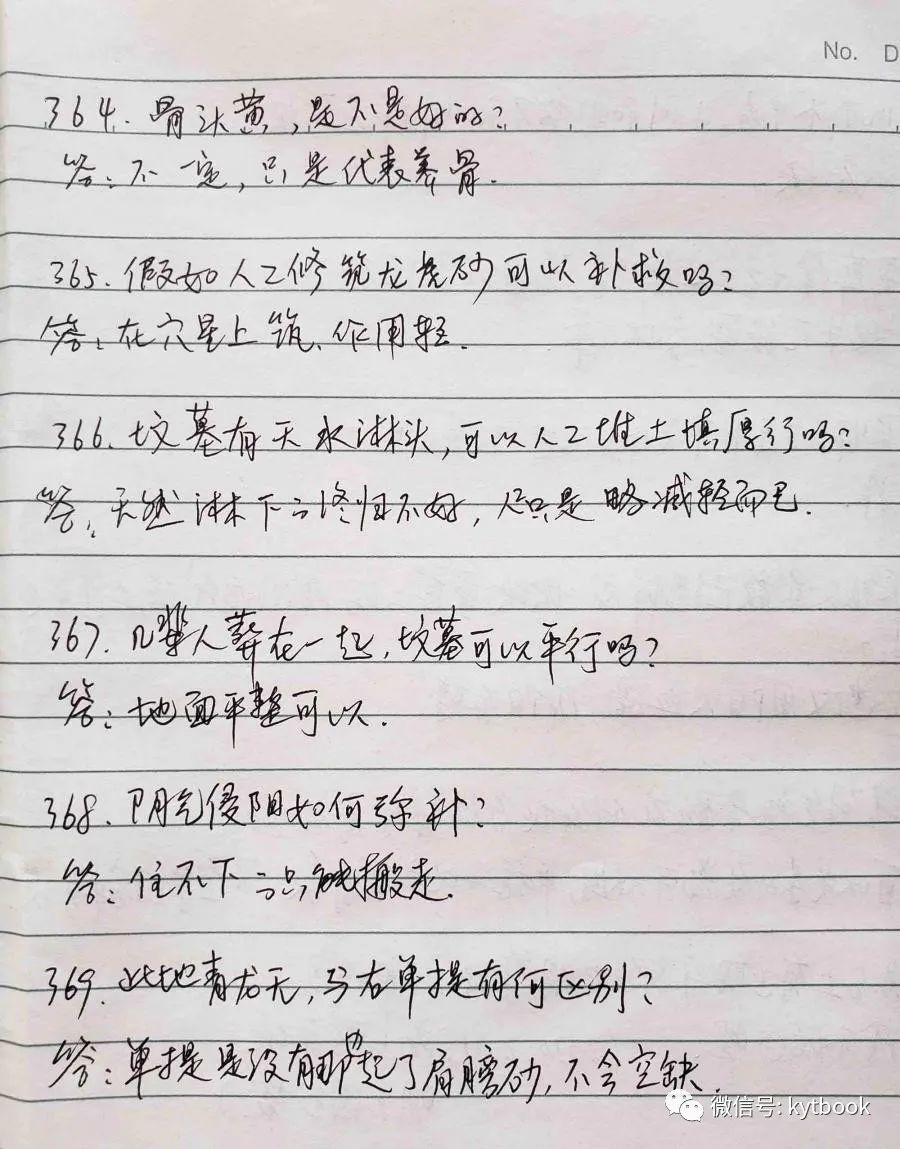 No. D
364. 骨头黄,是不是好的?
答:不一定,只是代表养骨.
365. 假如人工修筑龙虎砂可以补救吗?
答:在穴星上筑、作用轻.
366. 坟墓有天水淋头,可以人工堆土填厚行吗?
答:天然淋下 终归不好, 只是略减轻而已.
367. 几辈人葬在一起,坟墓可以平行吗?
答:地面平整可以.
368. 阴气侵阳如何弥补?
答:住不下 只能搬走.
369. 此地青龙无,与右单提有何区别?
答:单提是没有 起了肩膀砂,不会空缺.
微信号: kytbook